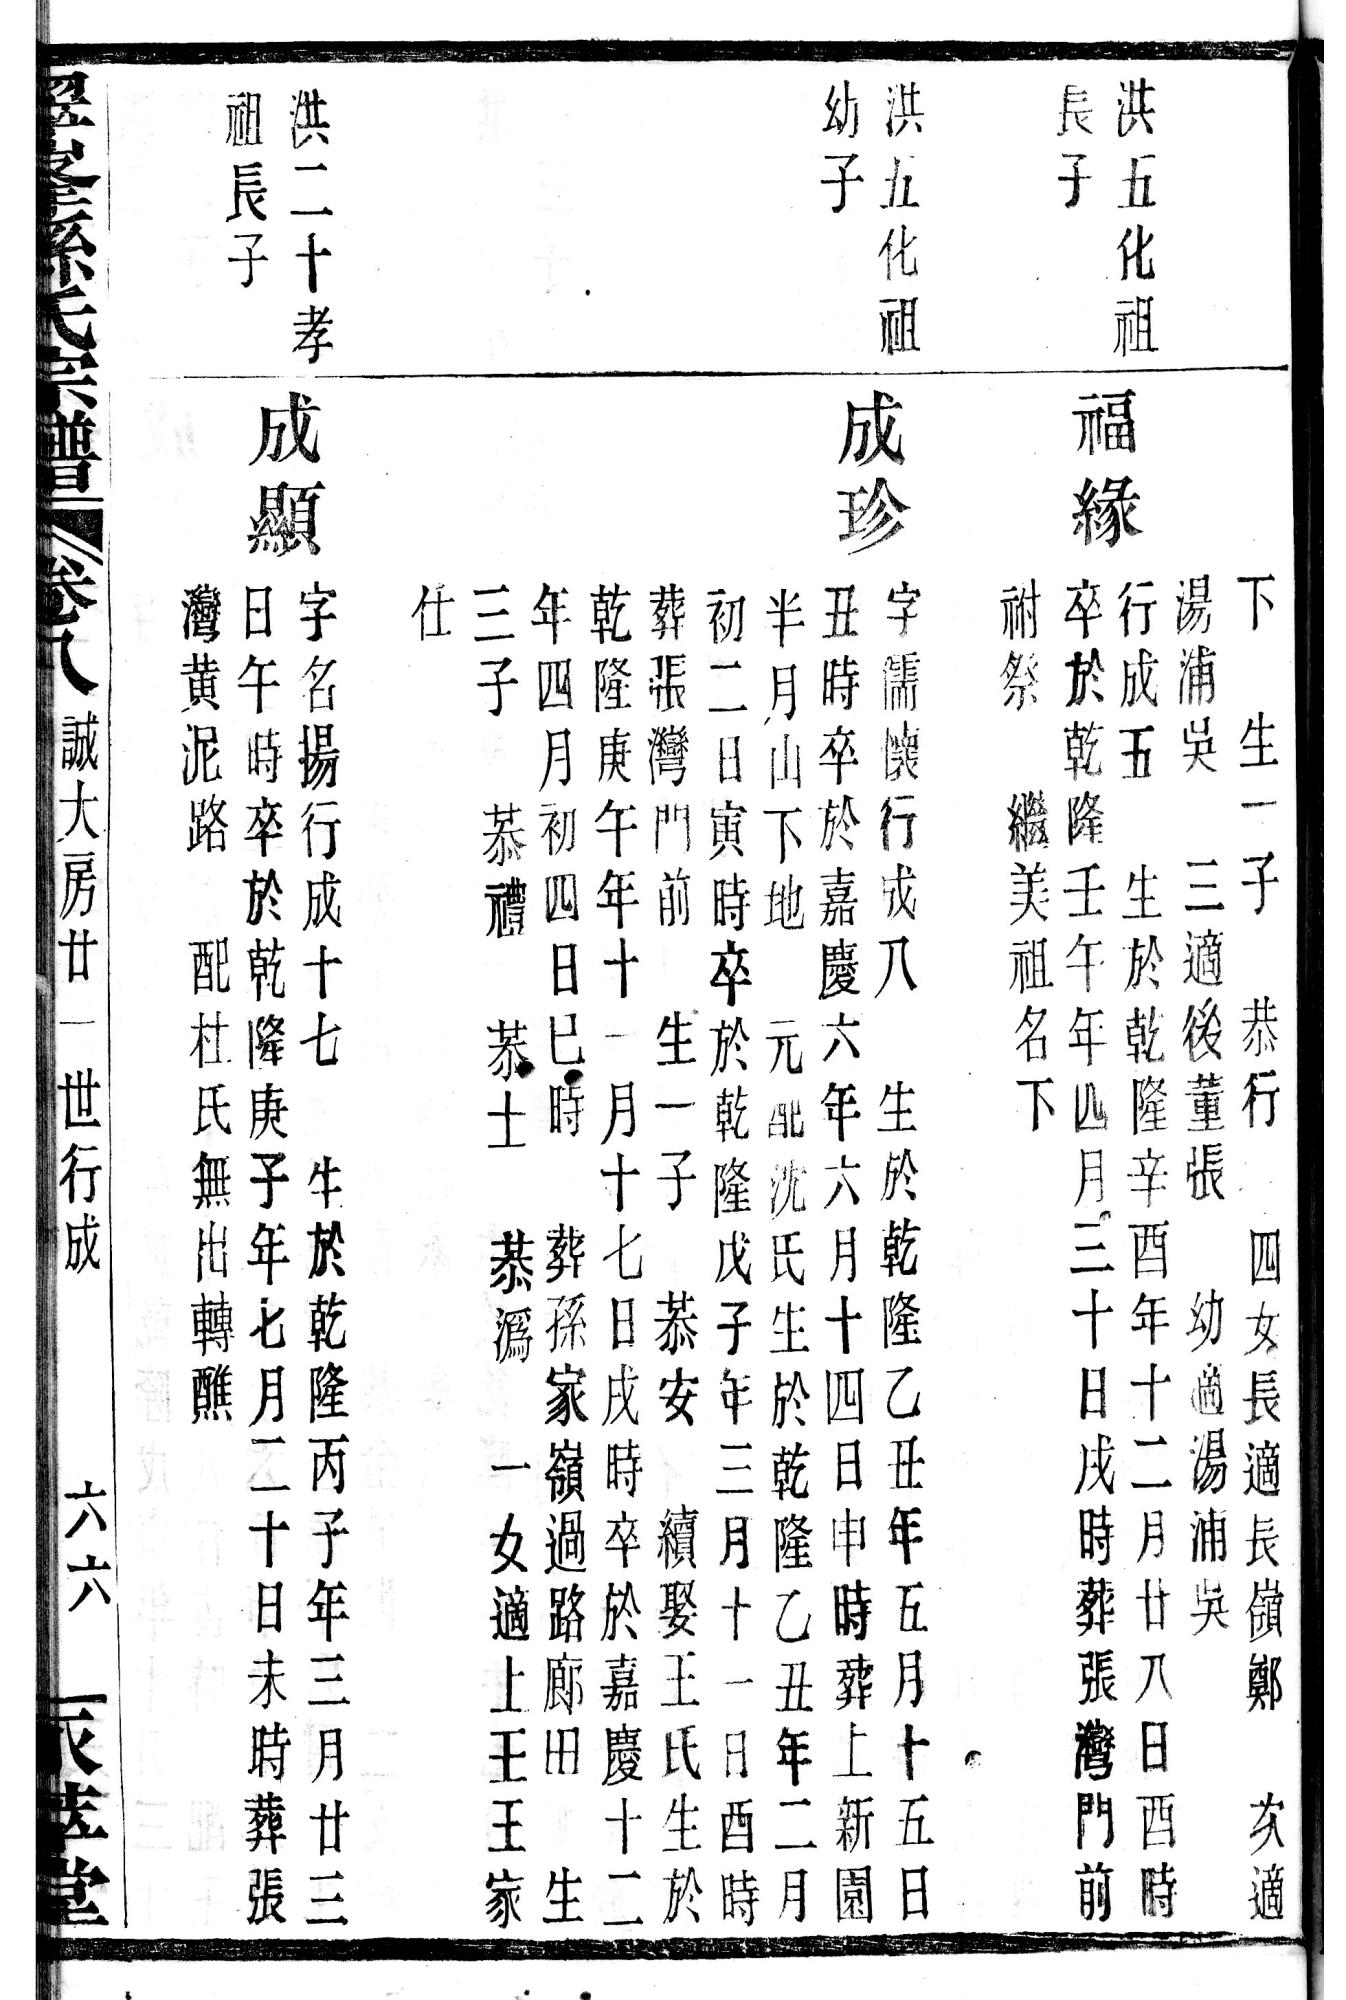 下 生一子 恭行 四女長適長嶺鄭 次適
湯浦吳 三適後董張 幼適湯浦吳
洪五化祖
長子
福緣
行成五 生於乾隆辛酉年十二月廿八日酉時
卒於乾隆壬午年四月三十日戌時葬張灣門前
祔祭 繼美祖名下
洪五化祖
幼子
成珍
字儒懷行成八 生於乾隆乙丑年五月十五日
丑時卒於嘉慶六年六月十四日申時葬上新園
半月山下地 元配沈氏生於乾隆乙丑年二月
初二日寅時卒於乾隆戊子年三月十一日酉時
葬張灣門前 生一子 恭安 續娶王氏生於
乾隆庚午年十一月十七日戌時卒於嘉慶十二
年四月初四日巳時 葬孫家嶺過路廊田 生
三子 恭禮 恭士 恭為 一女適上王王家
仕
洪二十孝
祖長子
成顯
字名揚行成十七 生於乾隆丙子年三月廿三
日午時卒於乾隆庚子年七月二十日未時葬張
灣黄泥路 配杜氏無出轉醮
孫氏宗譜 卷八 誠大房廿一世行成 六六 堂